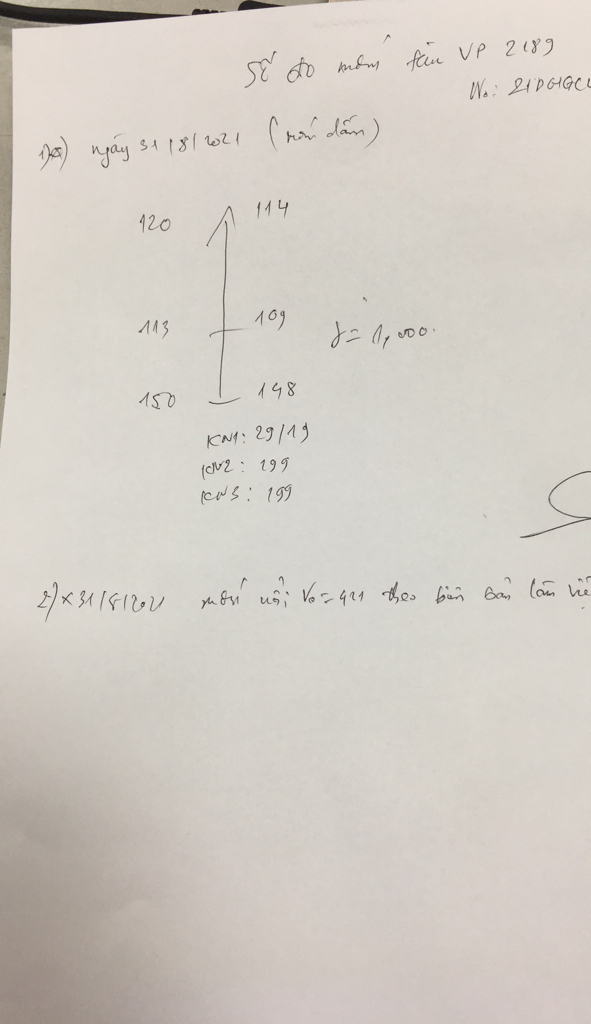 Số đo mớn tàu VP 2189
No: 21DGHGCL
1) ngày 31/8/2021 (mớn dấm)
120 114
113 109 γ = 1,000.
150 148
KN1: 29/19
KN2: 199
KN3: 199
2) x 31/8/2021 mớn nổi Vo = 421 theo biên bản làm việ